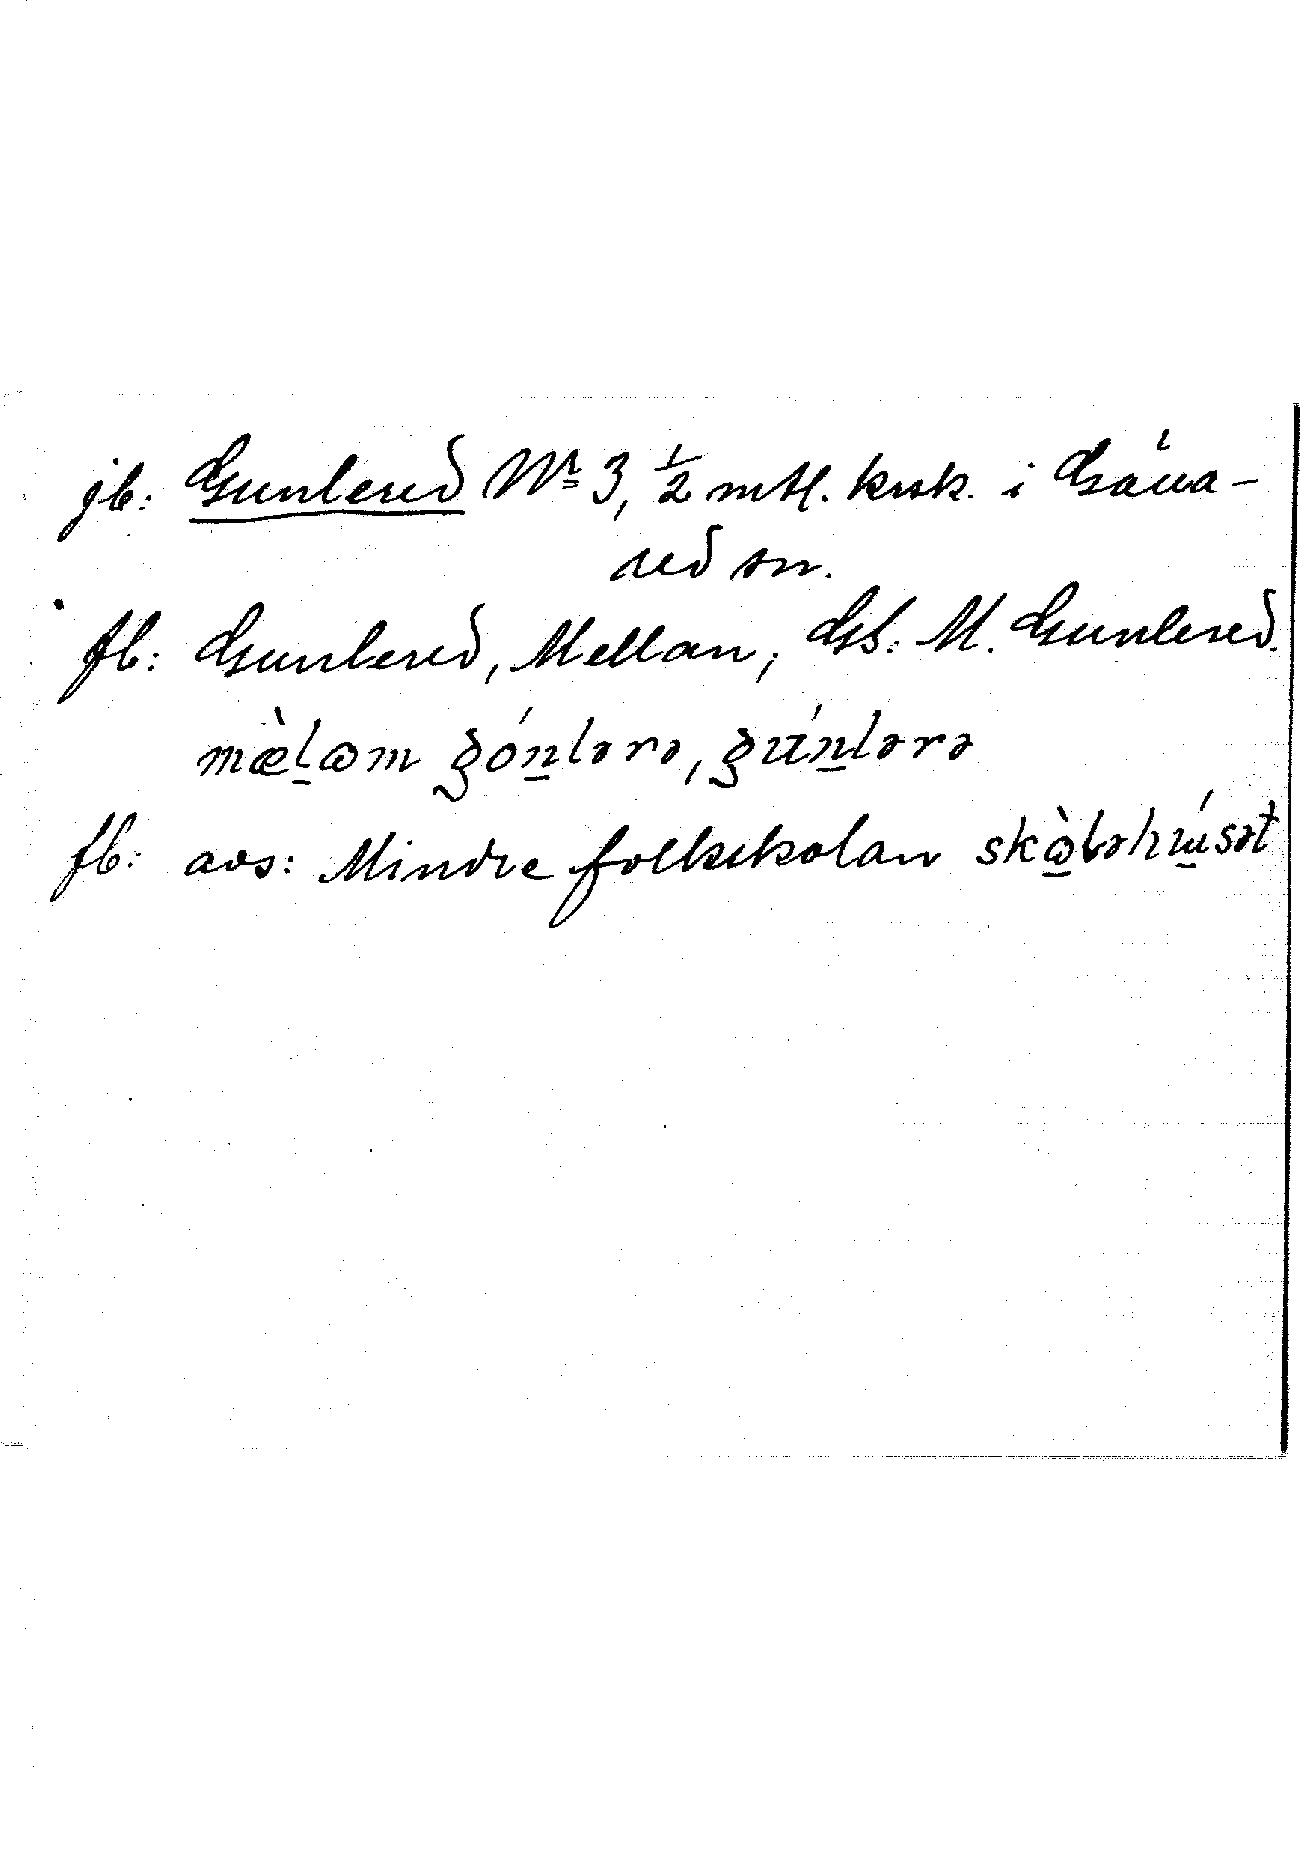 jb: Gunlered Nr 3, 1/2 mtl. krsk. i Gåsva-
red sn.
fb: Gunlered, Mellan, Gs: M. Gunlered.
mæ̀l̠ɷm gón̠lərə, gún̠lərə
fb: avs: Mindre folkskolan skɷ̠̀ləhʉ̠́sət